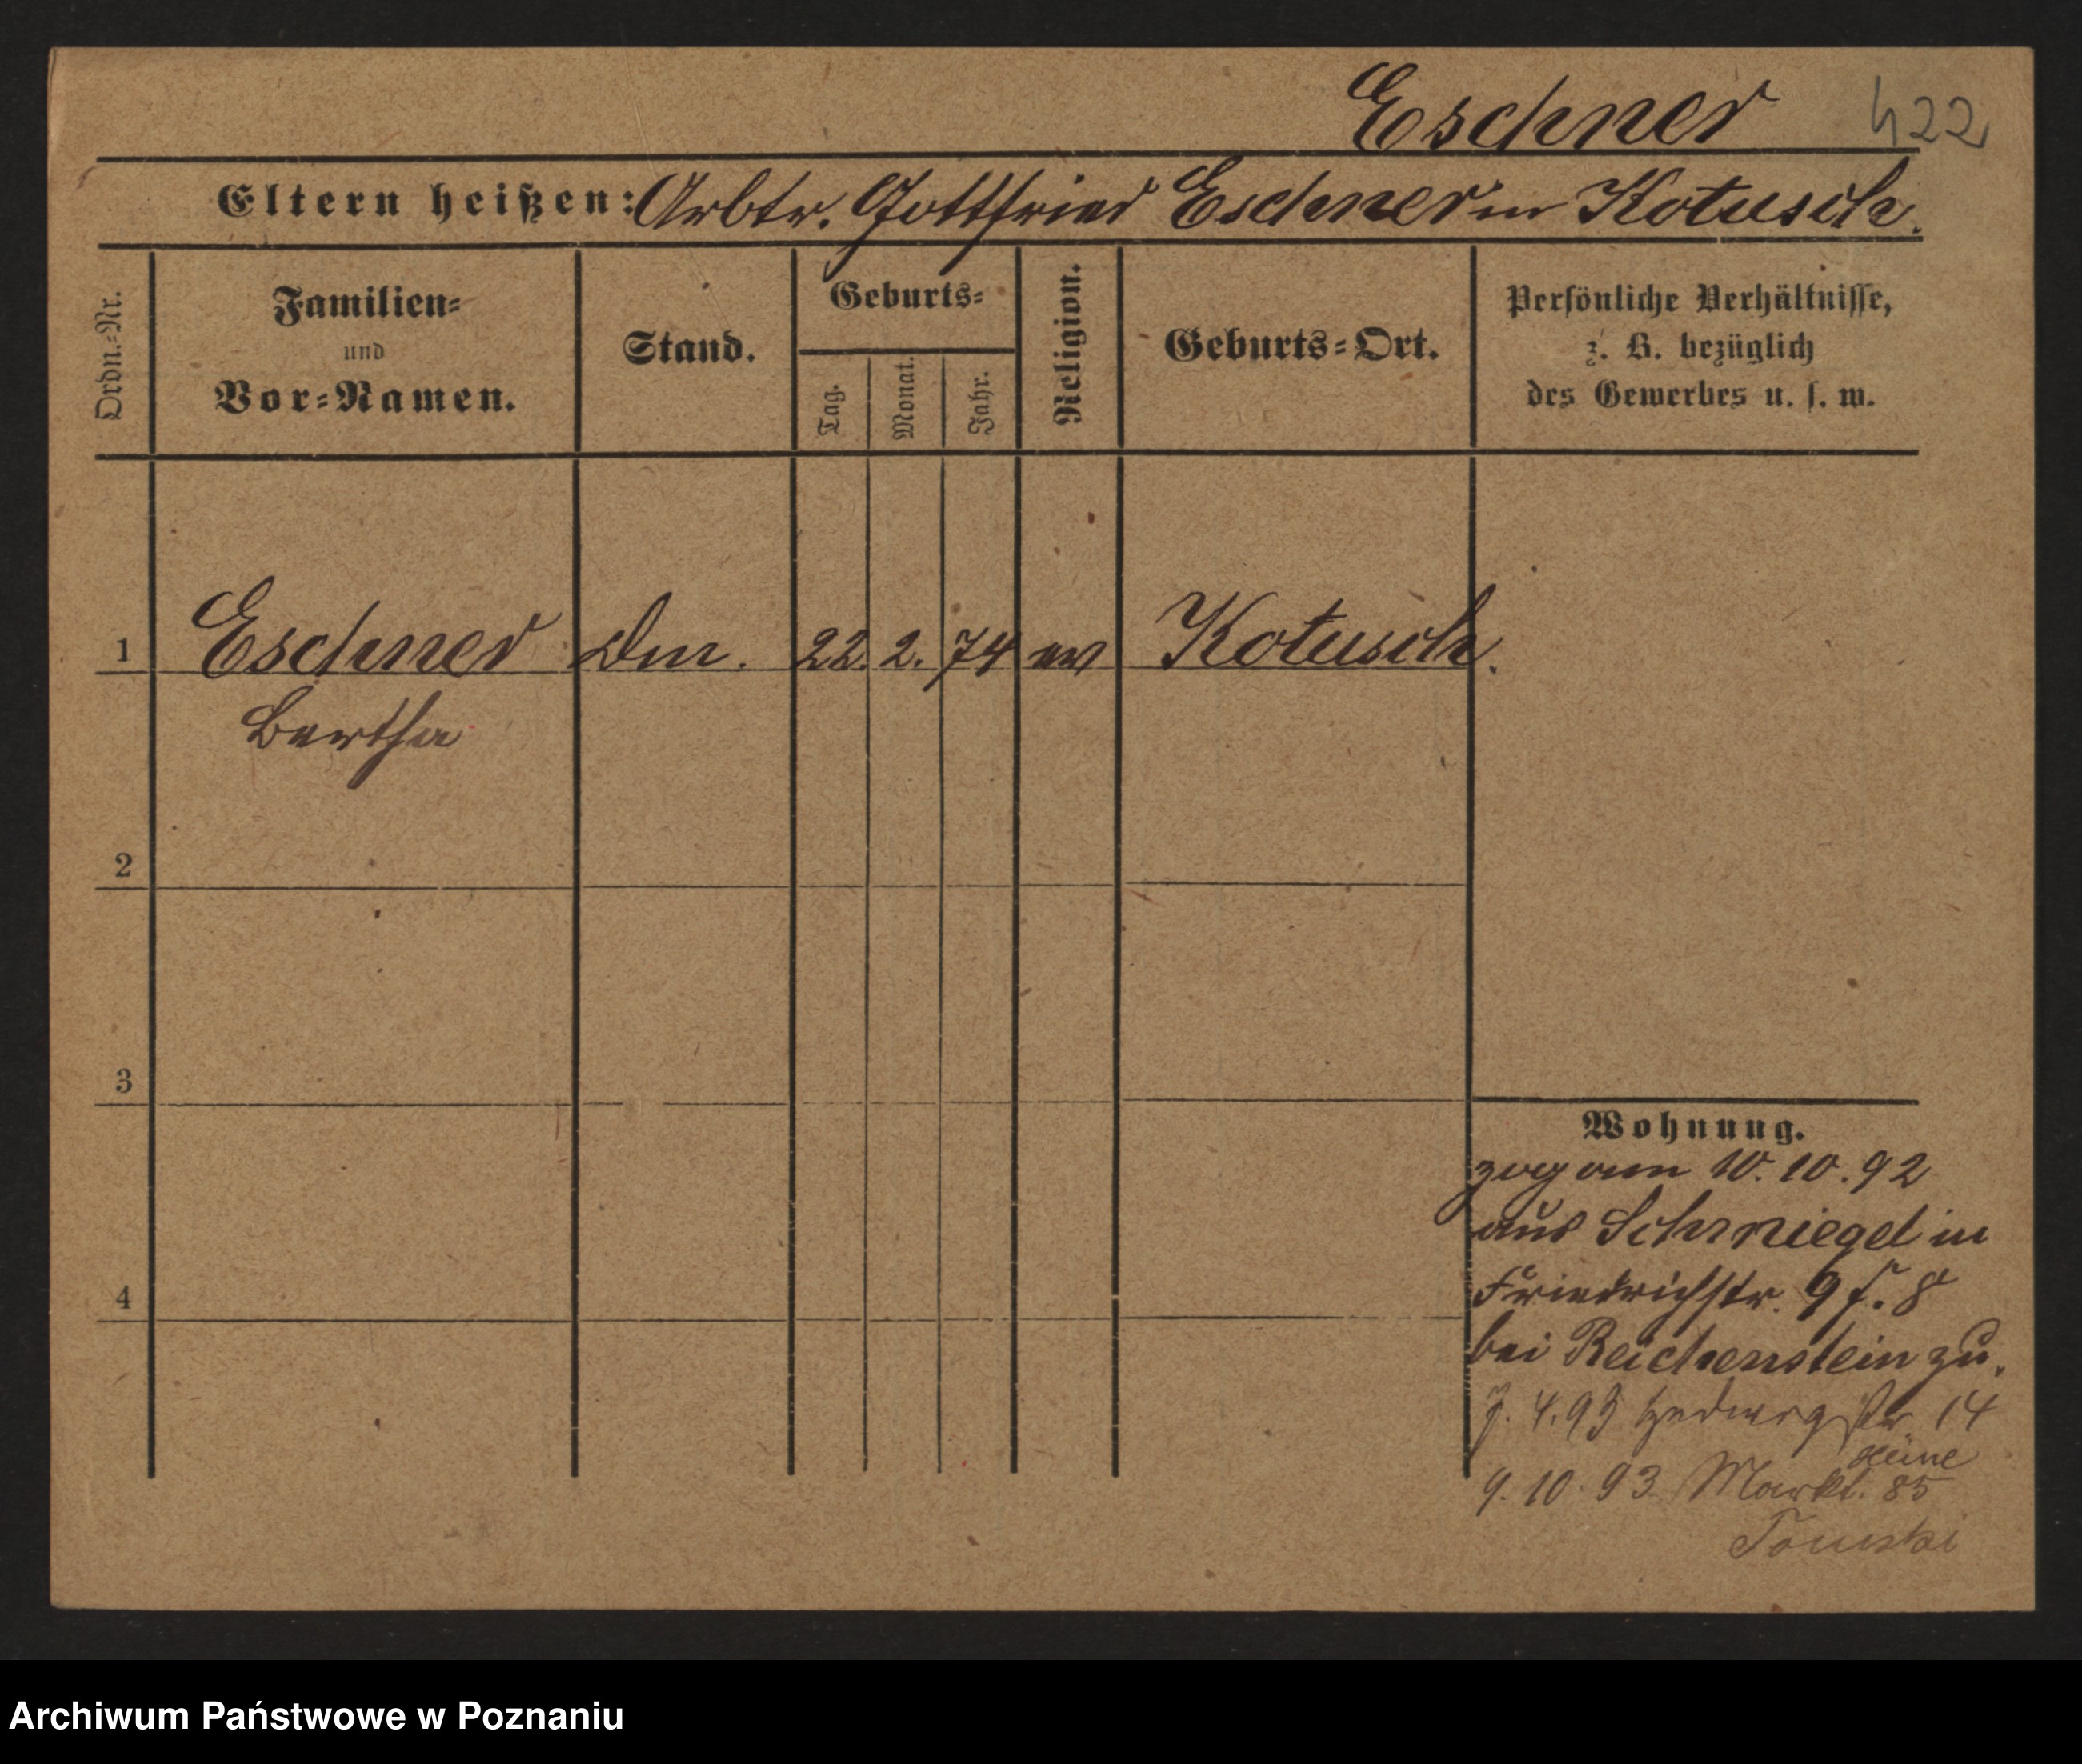 Eschner 422
Eltern heißen: Arbtr. Gottfried Eschner in Kotusch.
Ordn.-Nr.
Familien-
und
Vor-Namen.
Stand.
Geburts-
Tag.
Monat.
Jahr.
Religion.
Geburts-Ort.
Persönliche Verhältnisse,
z. B. bezüglich
des Gewerbes u. s. w.
1 Eschner Dm. 22. 2. 74 ev Kotusch.
Bertha
2
3
4
Wohnung.
zog am 10. 10. 92
aus Schmiegel in
Friedrichstr. 9 f. 8
bei Reichenstein zu.
7. 4. 93 Hedwigstr 14
Heine
9. 10. 93 Markt. 85
Tomski
Archiwum Państwowe w Poznaniu